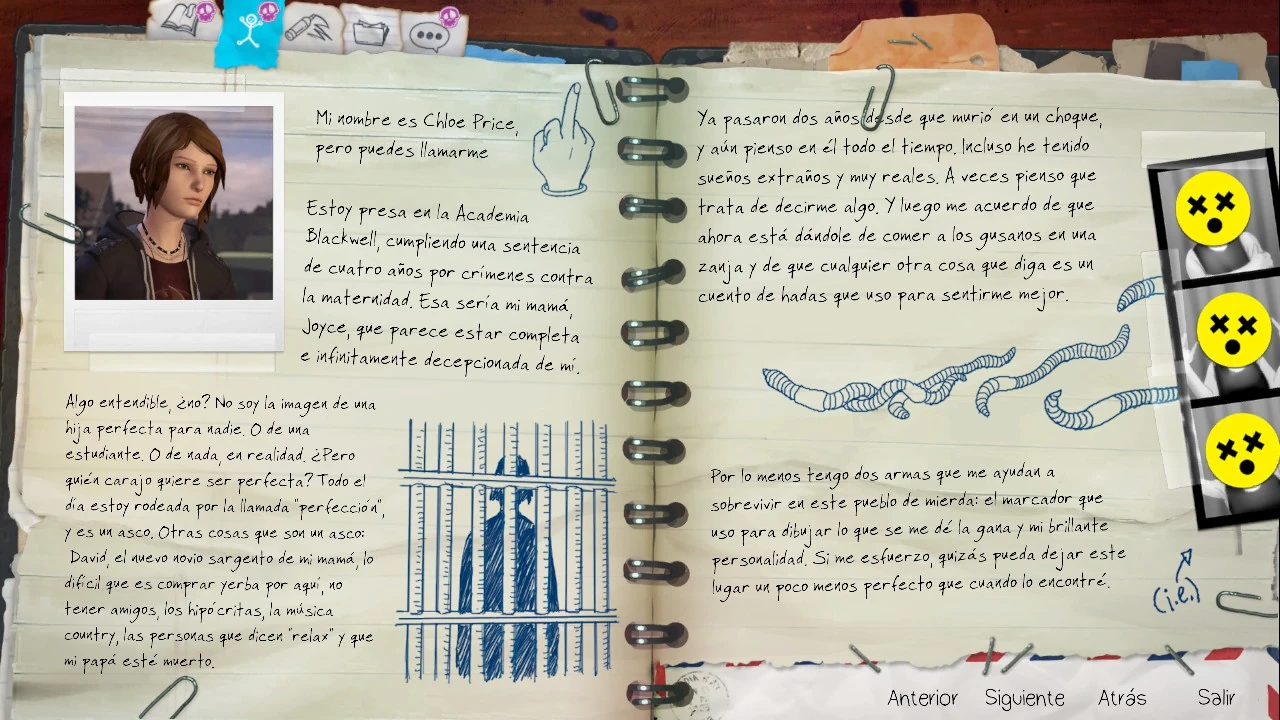 Mi nombre es Chloe Price,
pero puedes llamarme
Estoy presa en la Academia
Blackwell, cumpliendo una sentencia
de cuatro años por crímenes contra
la maternidad. Esa sería mi mamá,
Joyce, que parece estar completa
e infinitamente decepcionada de mí.
Algo entendible, ¿no? No soy la imagen de una
hija perfecta para nadie. O de una
estudiante. O de nada, en realidad. ¿Pero
quién carajo quiere ser perfecta? Todo el
día estoy rodeada por la llamada "perfección",
y es un asco. Otras cosas que son un asco:
David, el nuevo novio sargento de mi mamá, lo
difícil que es comprar yerba por aquí, no
tener amigos, los hipócritas, la música
country, las personas que dicen "relax" y que
mi papá esté muerto.
Ya pasaron dos años desde que murió en un choque,
y aún pienso en él todo el tiempo. Incluso he tenido
sueños extraños y muy reales. A veces pienso que
trata de decirme algo. Y luego me acuerdo de que
ahora está dándole de comer a los gusanos en una
zanja y de que cualquier otra cosa que diga es un
cuento de hadas que uso para sentirme mejor.
Por lo menos tengo dos armas que me ayudan a
sobrevivir en este pueblo de mierda: el marcador que
uso para dibujar lo que se me dé la gana y mi brillante
personalidad. Si me esfuerzo, quizás pueda dejar este
lugar un poco menos perfecto que cuando lo encontré.
(i.e.)
Anterior Siguiente Atrás Salir